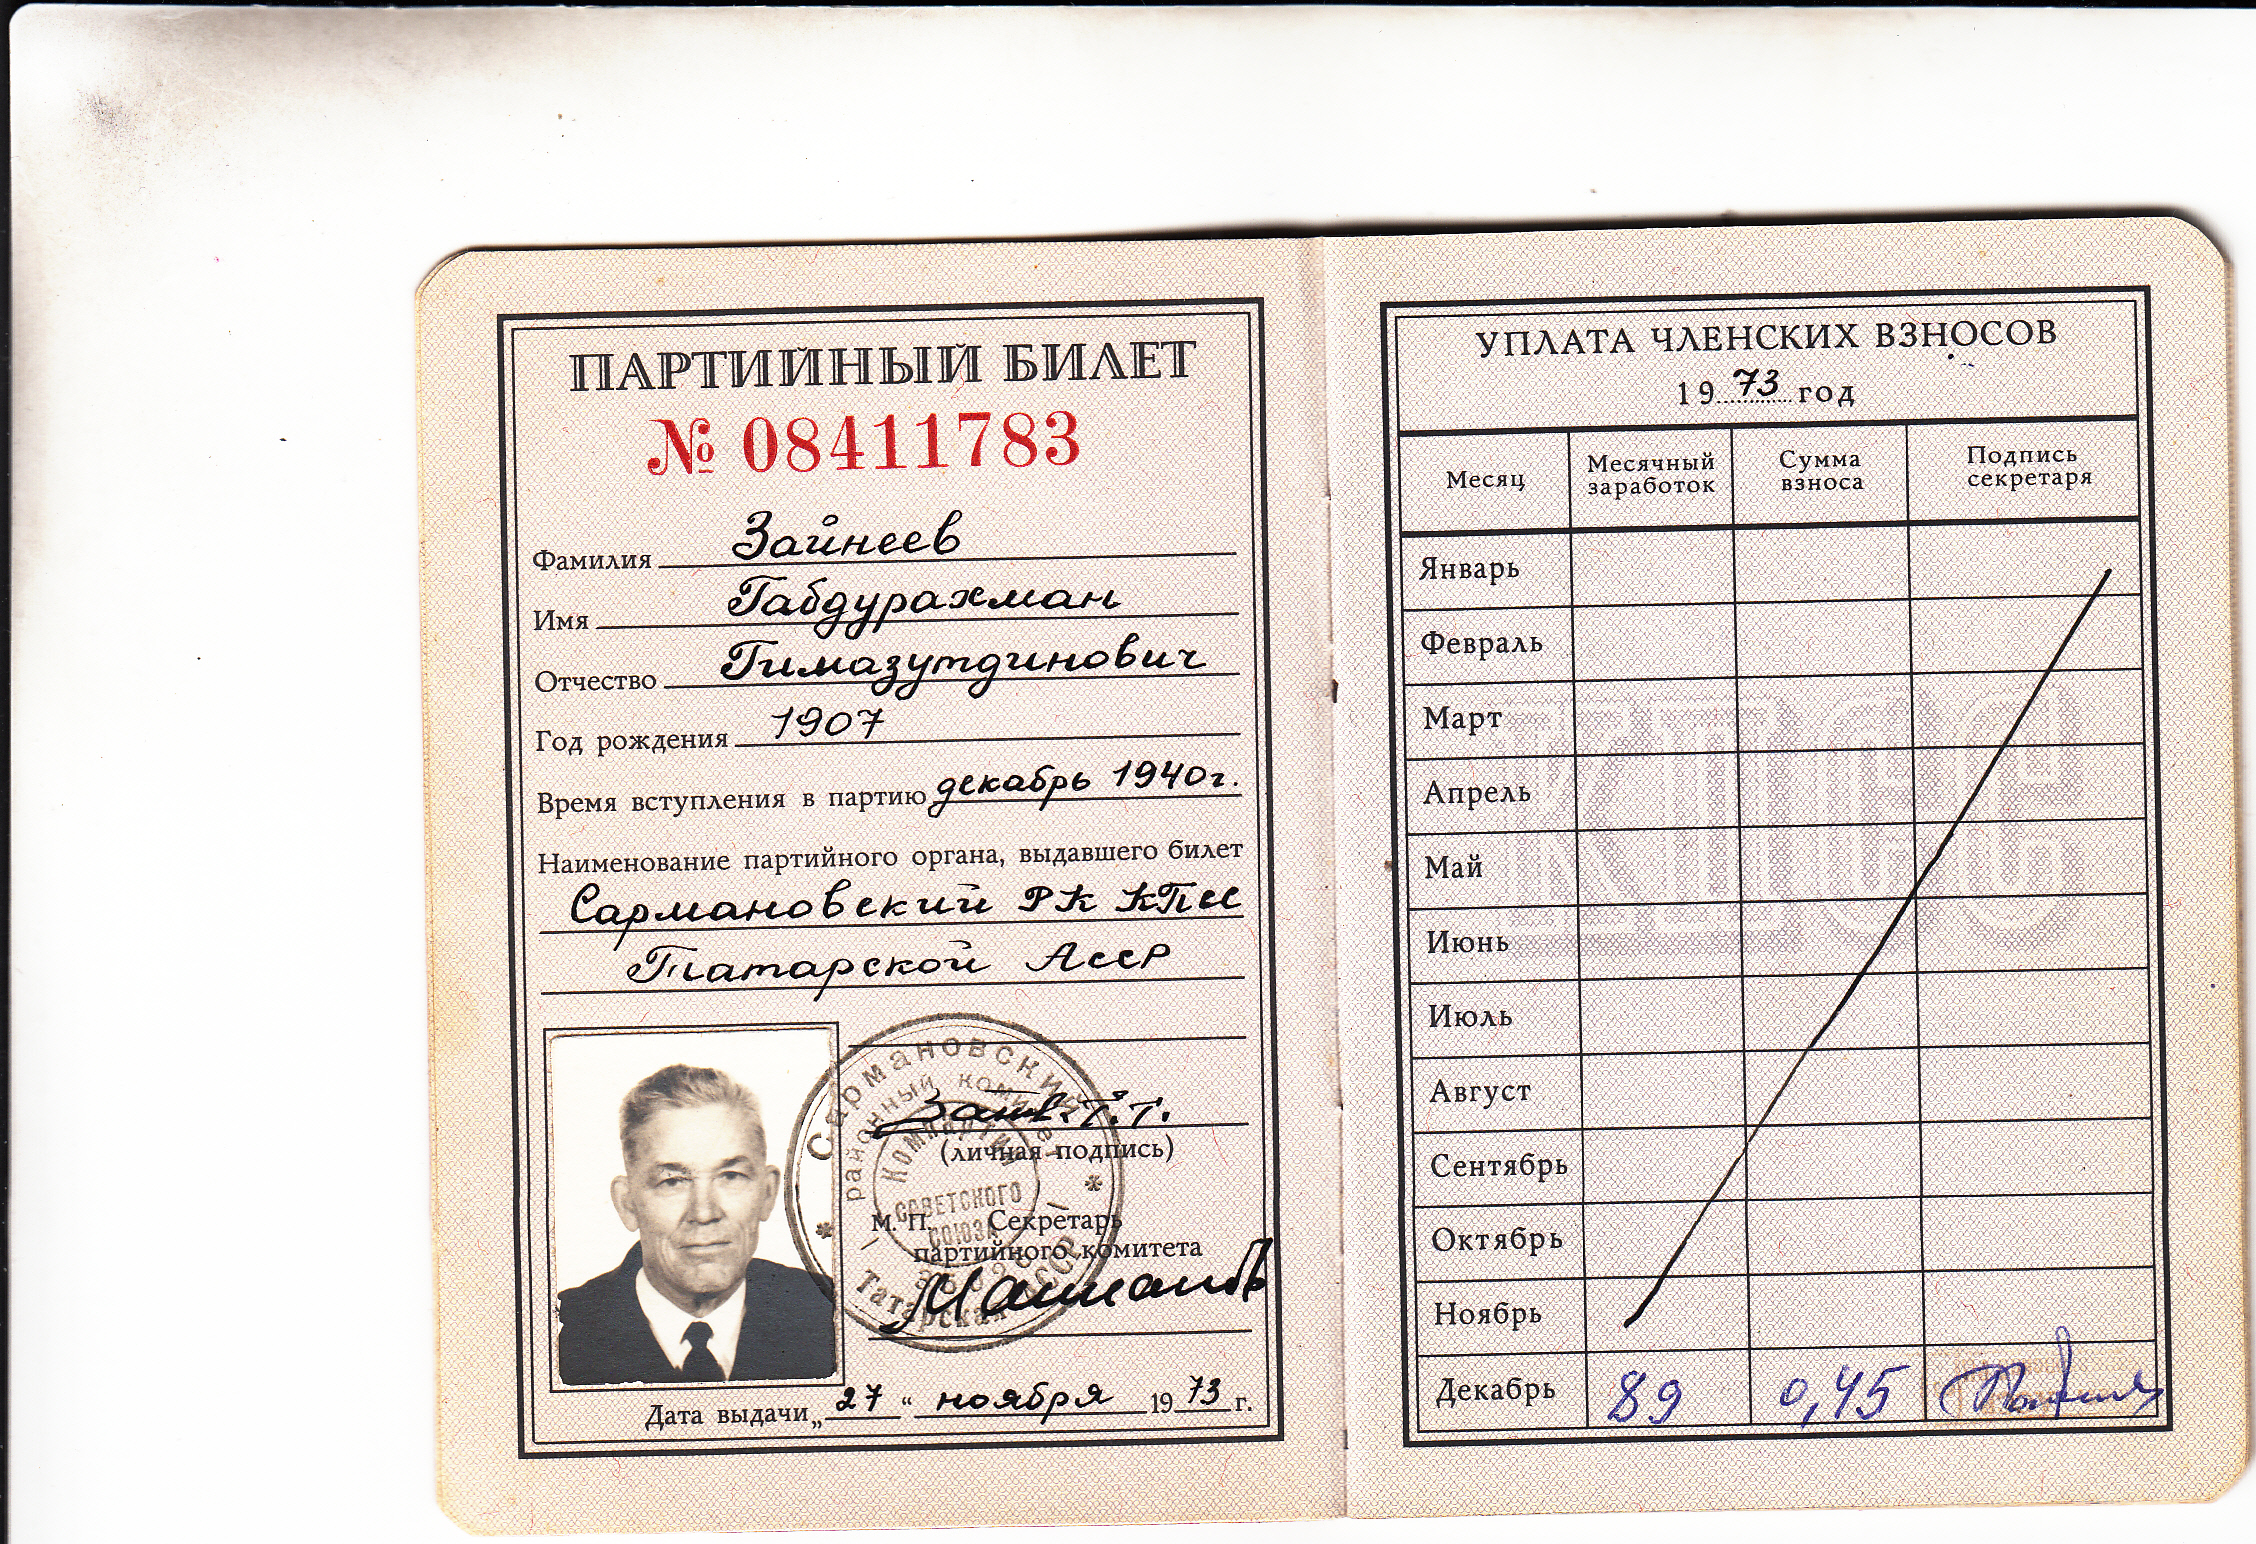 ПАРТИЙНЫЙ БИЛЕТ
№ 08411783
Фамилия Зайнеев
Имя Габдурахман
Отчество Гимазутдинович
Год рождения 1907
Время вступления в партию декабрь 1940г.
Наименование партийного органа, выдавшего билет
Сармановский РК КПСС
Татарской АССР
Сармановский
районный комитет
Компартии
Советского
Союза
Татарская АССР
(личная подпись)
М. П. Секретарь
партийного комитета
Дата выдачи „27“ ноября 1973 г.
УПЛАТА ЧЛЕНСКИХ ВЗНОСОВ
1973 год
Месяц Месячный заработок Сумма взноса Подпись секретаря
Январь
Февраль
Март
Апрель
Май
Июнь
Июль
Август
Сентябрь
Октябрь
Ноябрь
Декабрь 89 0,45